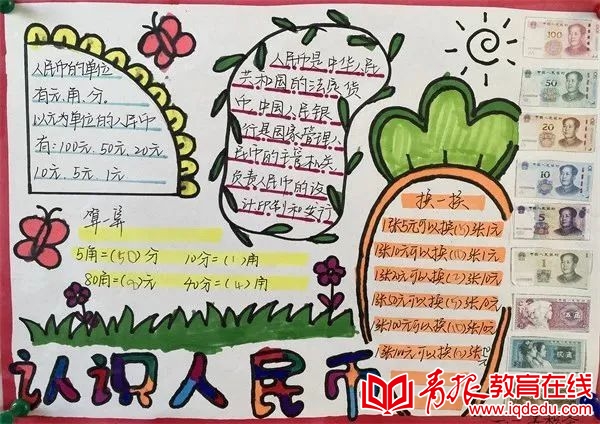 人民币的单位
有元、角、分。
以元为单位的人民币
有:100元、50元、20元
10元、5元、1元
人民币是中华人民
共和国的法定货
币,中国人民银
行是国家管理人
民币的主管机关
负责人民币的设
计印制和发行
算一算
5角=(50)分 10分=(1)角
80角=(8)元 40分=(4)角
换一换
1张5元可以换(5)张1元
1张10元可以换(10)张1元
1张20元可以换(2)张10元
1张100元可以换(10)张10元
认识人民币
100
50
20
10
5
1
青报教育在线
www.iqdedu.com